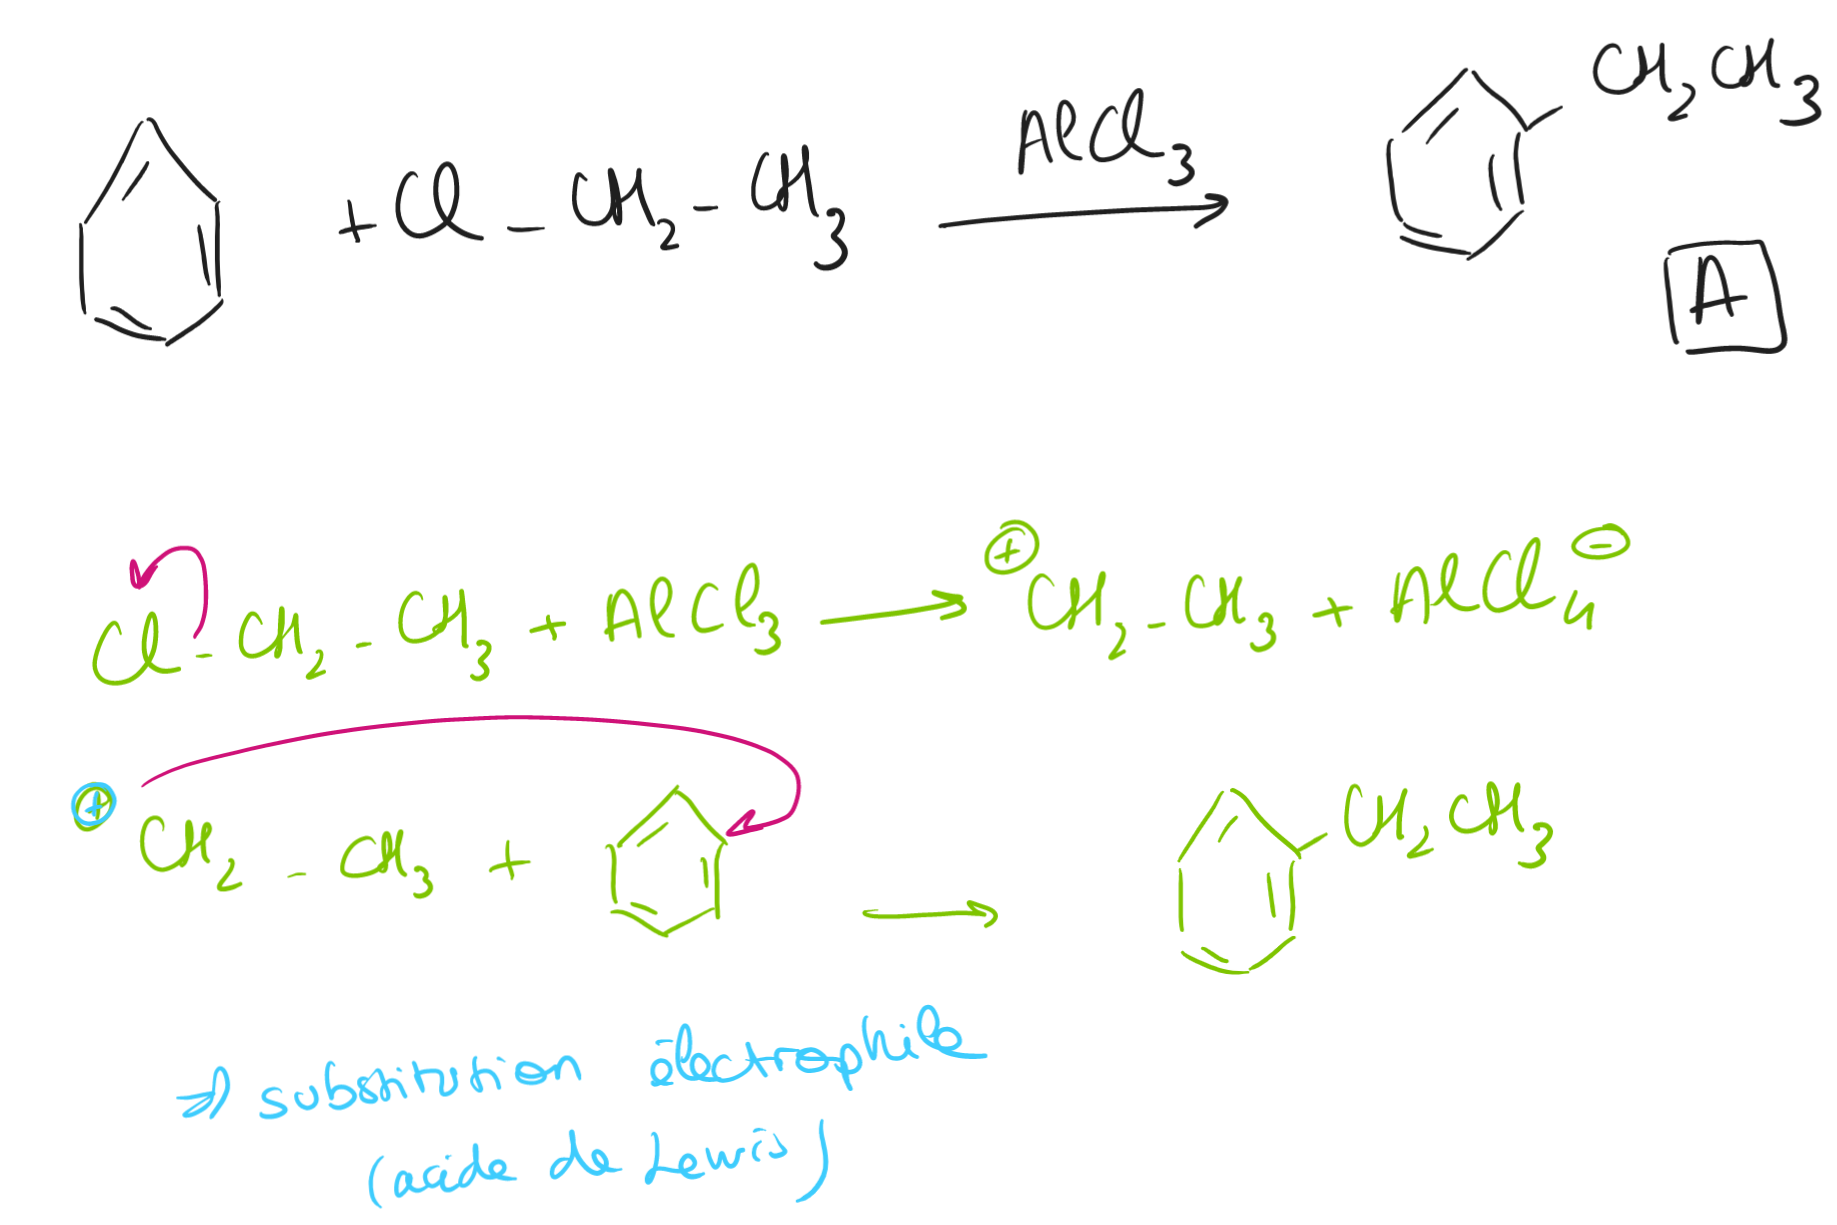 + Cl - CH2 - CH3 AlCl3 CH2CH3
A
Cl - CH2 - CH3 + AlCl3 → ⊕CH2 - CH3 + AlCl4⊖
⊕CH2 - CH3 + → CH2CH3
⇒ substitution électrophile
(acide de Lewis)